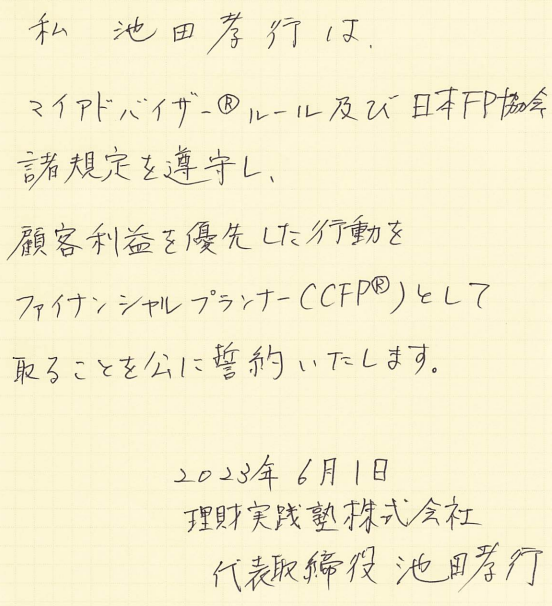 私 池田孝行は、
マイアドバイザー®ルール及び日本FP協会
諸規定を遵守し、
顧客利益を優先した行動を
ファイナンシャルプランナー(CFP®)として
取ることを公に誓約いたします。
2023年6月1日
理財実践塾株式会社
代表取締役 池田孝行